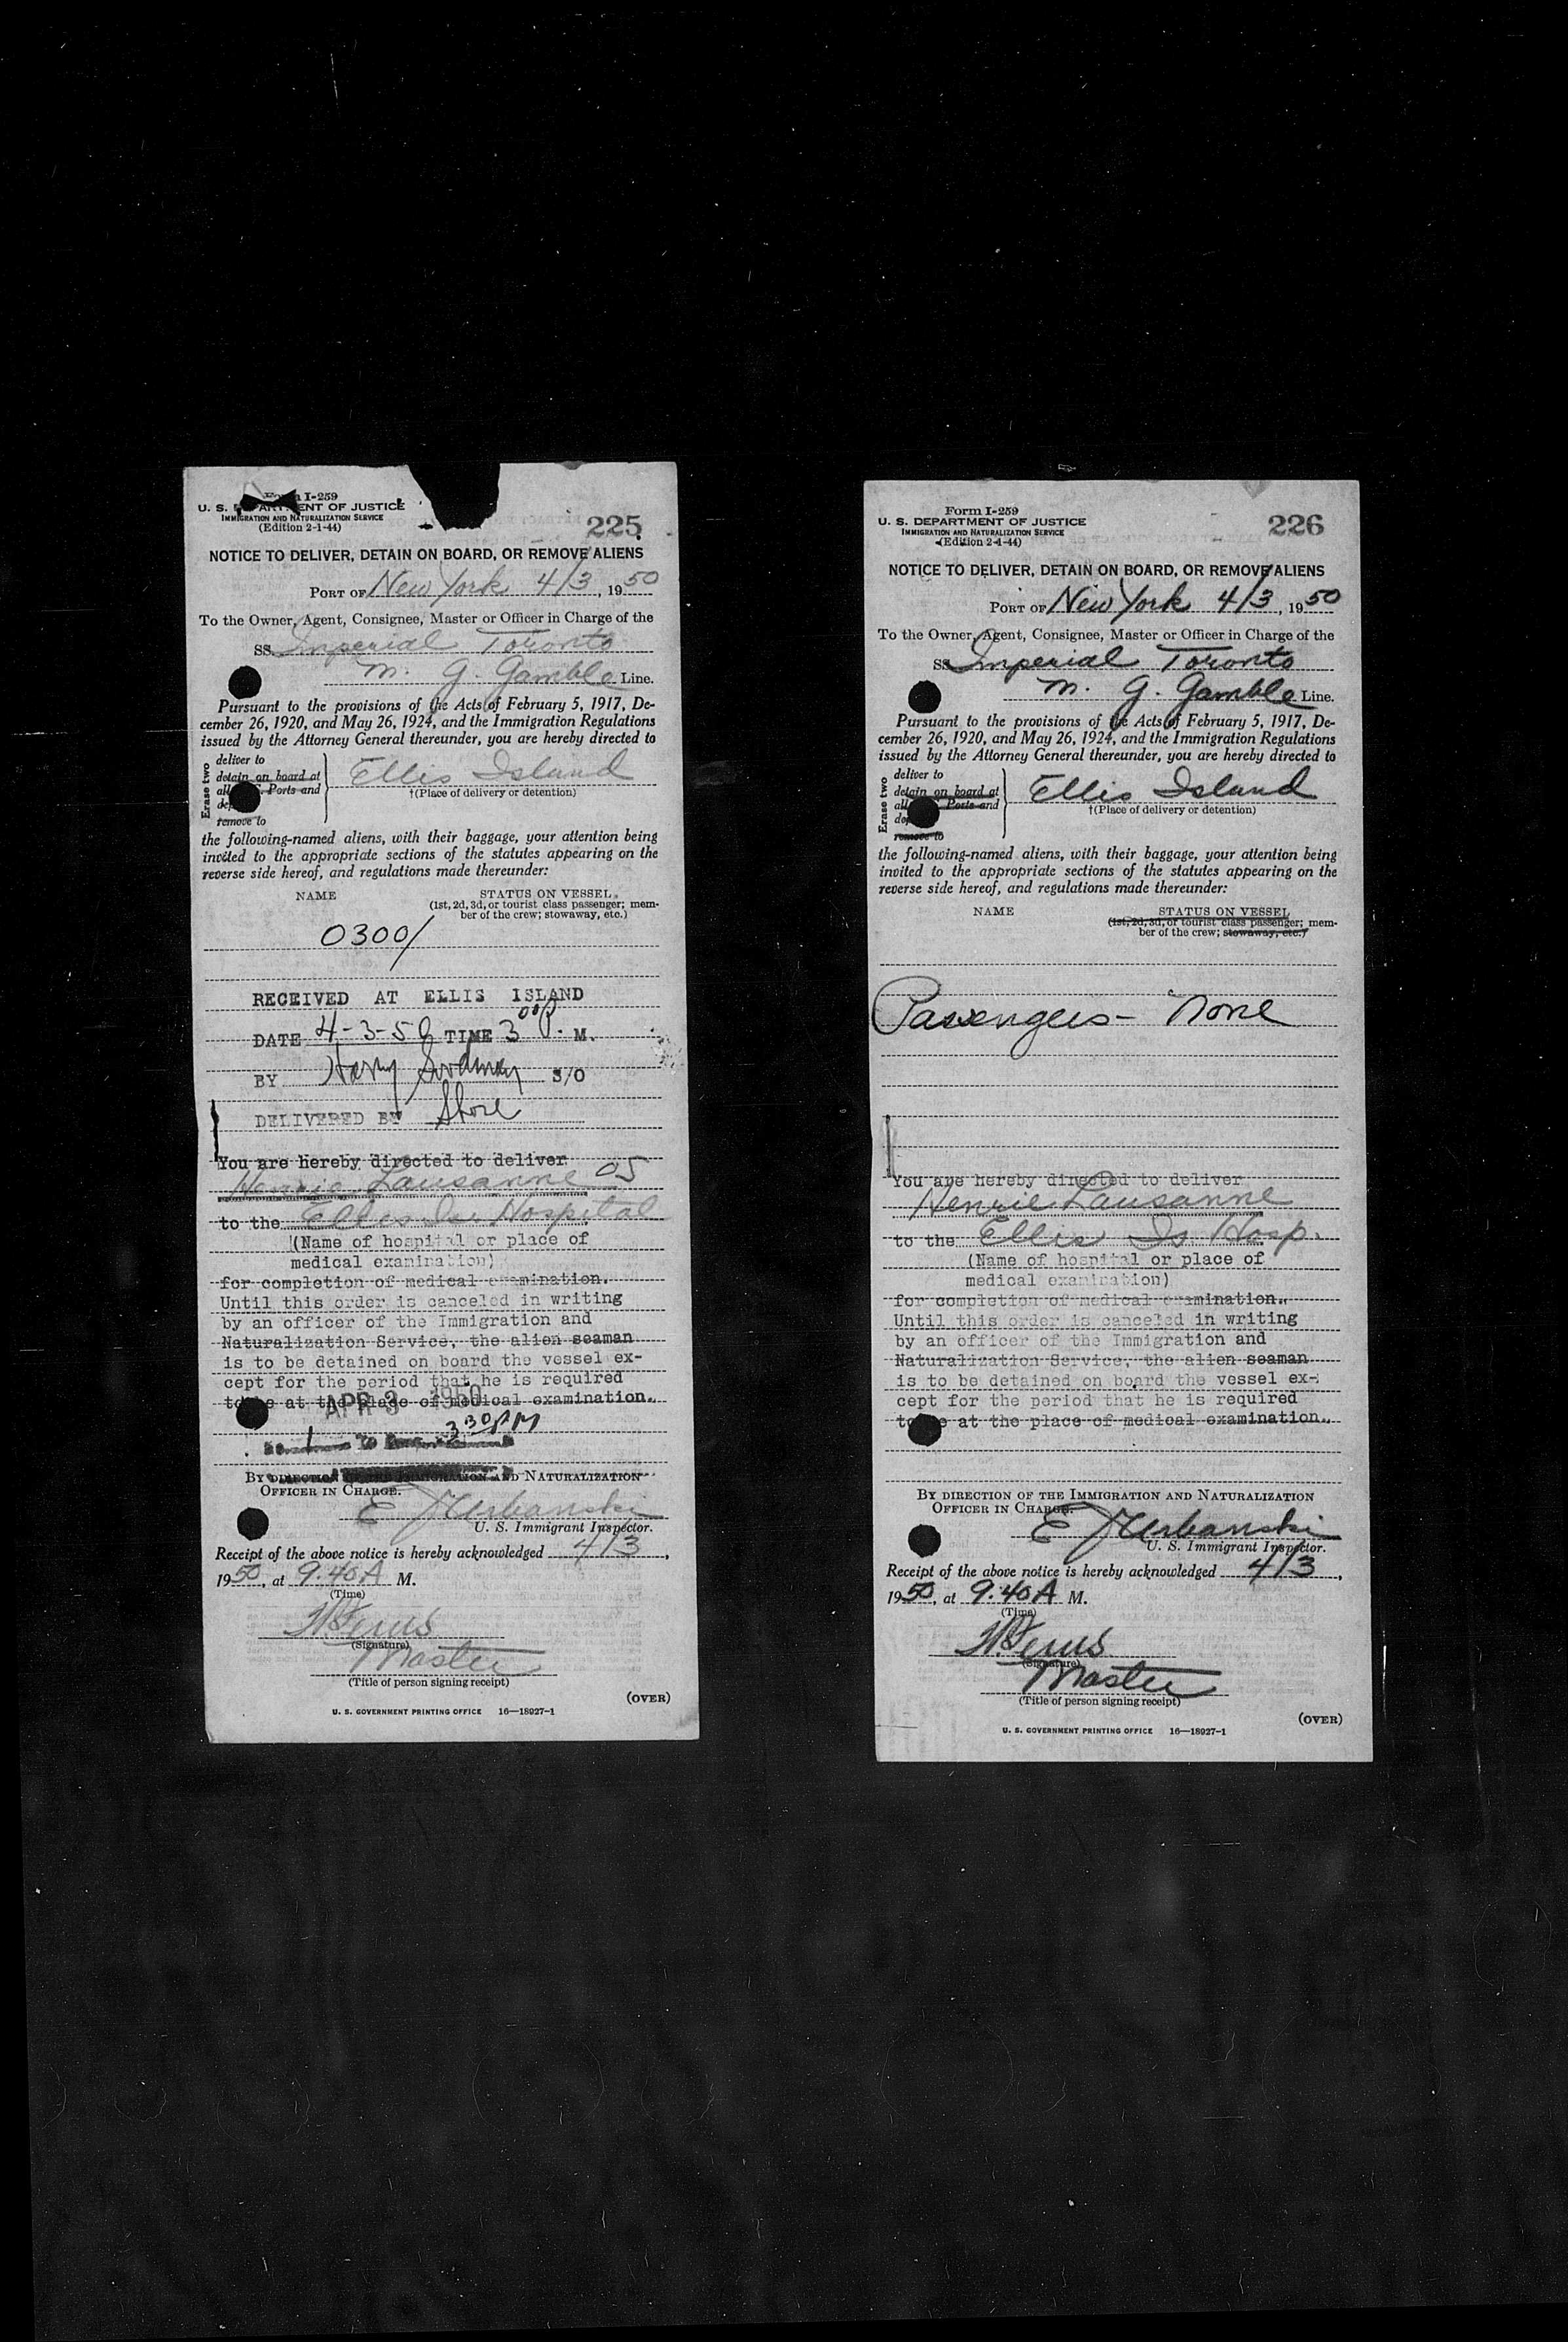 Form I-259
U. S. DEPARTMENT OF JUSTICE
IMMIGRATION AND NATURALIZATION SERVICE
(Edition 2-1-44)
225
NOTICE TO DELIVER, DETAIN ON BOARD, OR REMOVE ALIENS
PORT OF New York 4/3, 1950
To the Owner, Agent, Consignee, Master or Officer in Charge of the
SS. Imperial Toronto
M. G. Gamble Line.
Pursuant to the provisions of the Acts of February 5, 1917, De-
cember 26, 1920, and May 26, 1924, and the Immigration Regulations
issued by the Attorney General thereunder, you are hereby directed to
Erase two
deliver to
detain on board at
all Ports and
remove to
Ellis Island
†(Place of delivery or detention)
the following-named aliens, with their baggage, your attention being
invited to the appropriate sections of the statutes appearing on the
reverse side hereof, and regulations made thereunder:
NAME STATUS ON VESSEL
(1st, 2d, 3d, or tourist class passenger; mem-
ber of the crew; stowaway, etc.)
0300/
RECEIVED AT ELLIS ISLAND
DATE 4-3-50 TIME 3 00 P. M.
BY Harry S/O
DELIVERED BY Shore
You are hereby directed to deliver
Henrie Lausanne 05
to the Ellis Is. Hospital
(Name of hospital or place of
medical examination)
for completion of medical examination.
Until this order is canceled in writing
by an officer of the Immigration and
Naturalization Service, the alien seaman
is to be detained on board the vessel ex-
cept for the period that he is required
to be at the place of medical examination.
APR 3 1950
3 30 PM
BY DIRECTION OF THE IMMIGRATION AND NATURALIZATION
OFFICER IN CHARGE.
E J Urbanski
U. S. Immigrant Inspector.
Receipt of the above notice is hereby acknowledged 4/3,
1950, at 9.40 A M.
(Time)
(Signature)
Master
(Title of person signing receipt)
(OVER)
U. S. GOVERNMENT PRINTING OFFICE 16—18927-1
Form I-259
U. S. DEPARTMENT OF JUSTICE
IMMIGRATION AND NATURALIZATION SERVICE
(Edition 2-1-44)
226
NOTICE TO DELIVER, DETAIN ON BOARD, OR REMOVE ALIENS
PORT OF New York 4/3, 1950
To the Owner, Agent, Consignee, Master or Officer in Charge of the
SS. Imperial Toronto
M. G. Gamble Line.
Pursuant to the provisions of the Acts of February 5, 1917, De-
cember 26, 1920, and May 26, 1924, and the Immigration Regulations
issued by the Attorney General thereunder, you are hereby directed to
Erase two
deliver to
detain on board at
all Ports and
remove to
Ellis Island
†(Place of delivery or detention)
the following-named aliens, with their baggage, your attention being
invited to the appropriate sections of the statutes appearing on the
reverse side hereof, and regulations made thereunder:
NAME STATUS ON VESSEL
(1st, 2d, 3d, or tourist class passenger; mem-
ber of the crew; stowaway, etc.)
Passengers - None
You are hereby directed to deliver
Henrie Lausanne
to the Ellis Is Hosp.
(Name of hospital or place of
medical examination)
for completion of medical examination.
Until this order is canceled in writing
by an officer of the Immigration and
Naturalization Service, the alien seaman
is to be detained on board the vessel ex-
cept for the period that he is required
to be at the place of medical examination.
BY DIRECTION OF THE IMMIGRATION AND NATURALIZATION
OFFICER IN CHARGE.
E J Urbanski
U. S. Immigrant Inspector.
Receipt of the above notice is hereby acknowledged 4/3,
1950, at 9.40 A M.
(Time)
(Signature)
Master
(Title of person signing receipt)
(OVER)
U. S. GOVERNMENT PRINTING OFFICE 16—18927-1